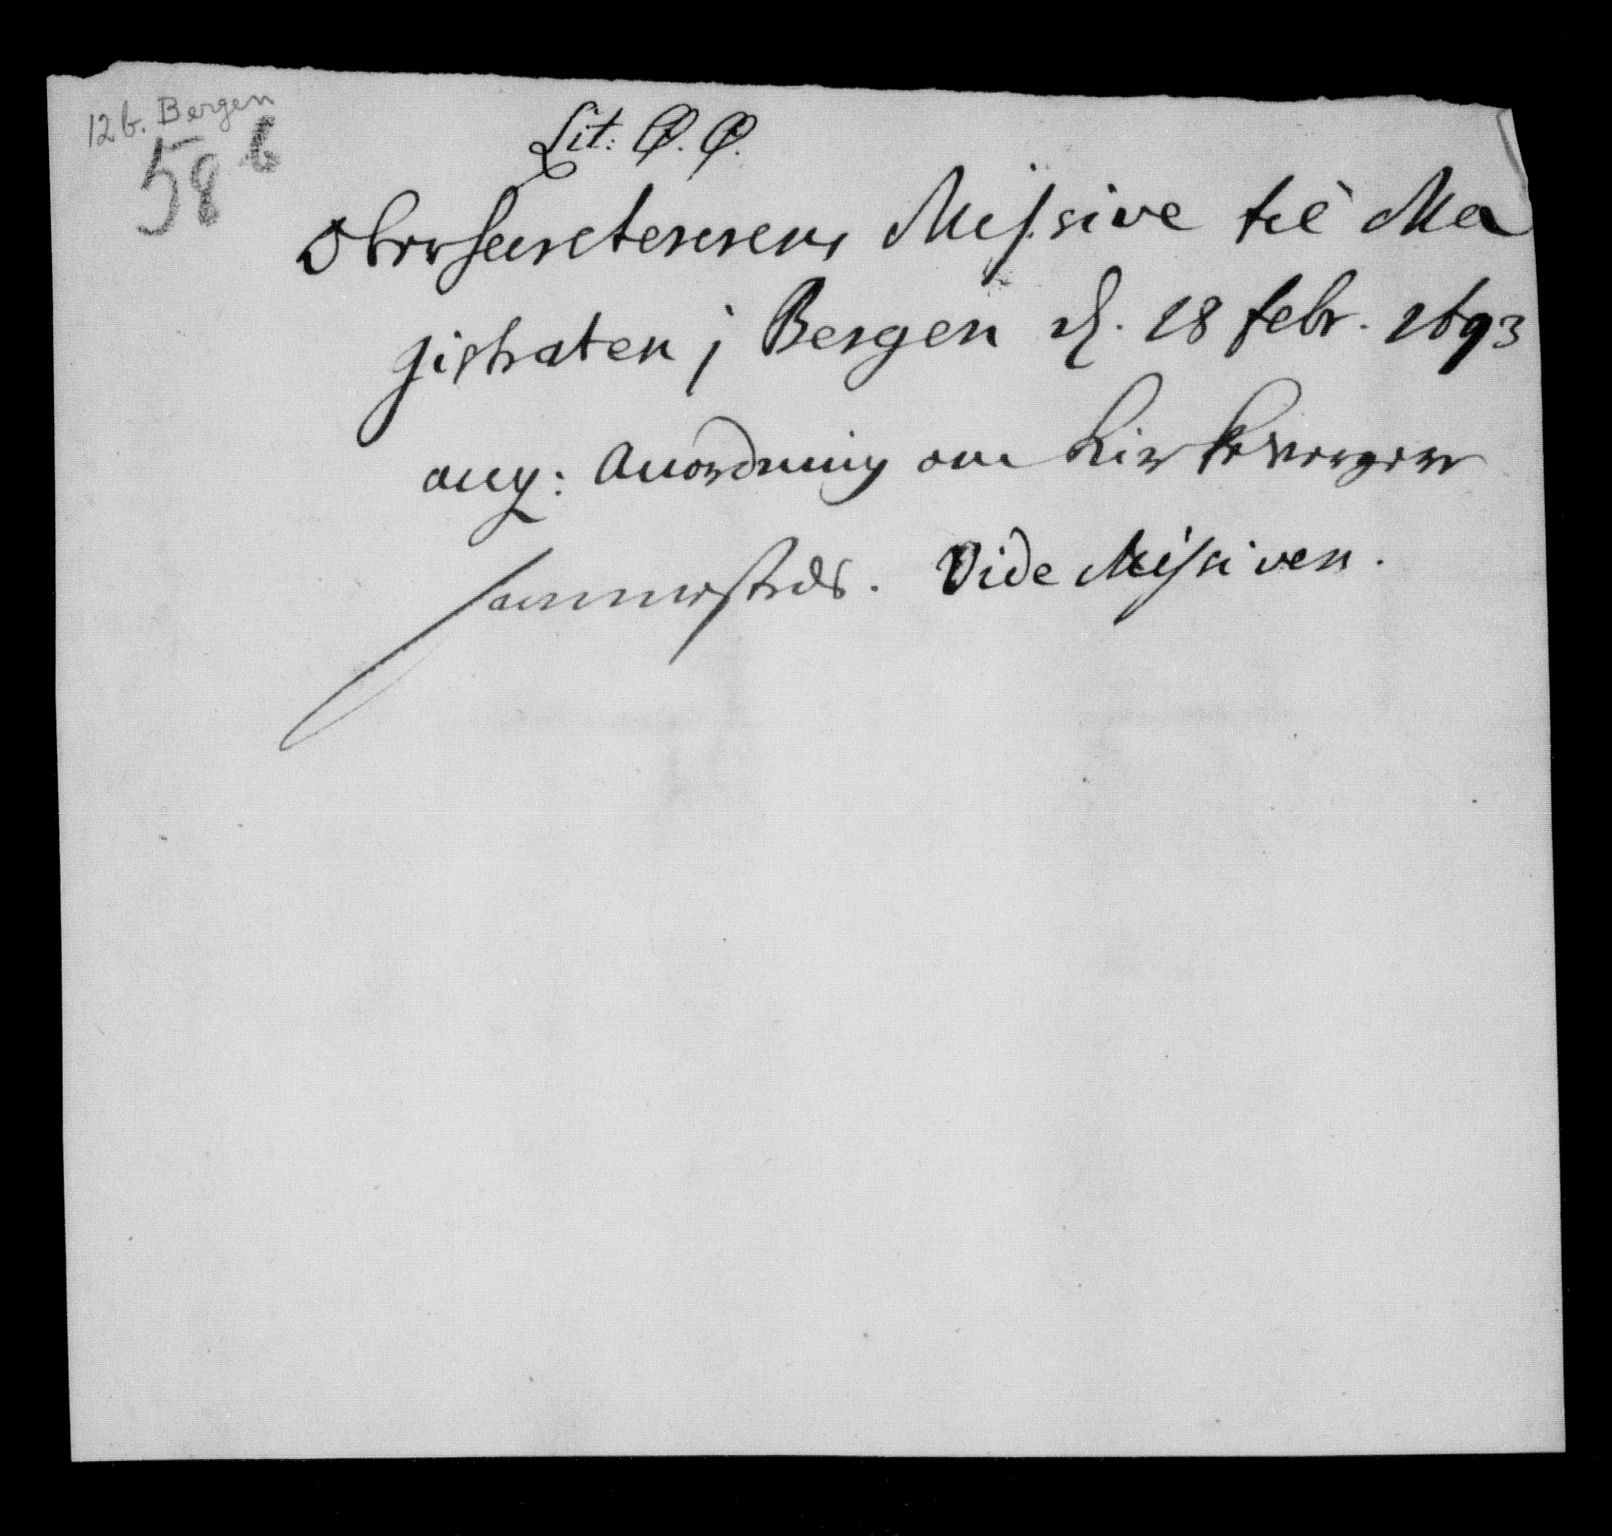 12 b. Bergen
58 b
Lit: Q. Q.
Obersecreterens Missive til Ma
gistraten j Bergen d. 18 febr. 1693
ang: Anordning om Kirkeverger
sammesteds. Vide Missiven.